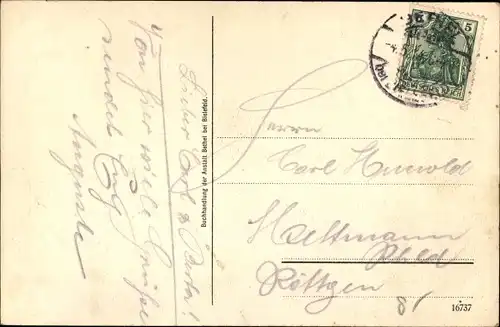 Lieber Carl & Berta!
Von hier viele Grüße
sendet Euch
Auguste
Buchhandlung der Anstalt Bethel bei Bielefeld.
5
Herrn
Carl Hunold
Mettmann
Rhld
Röttgen
16737